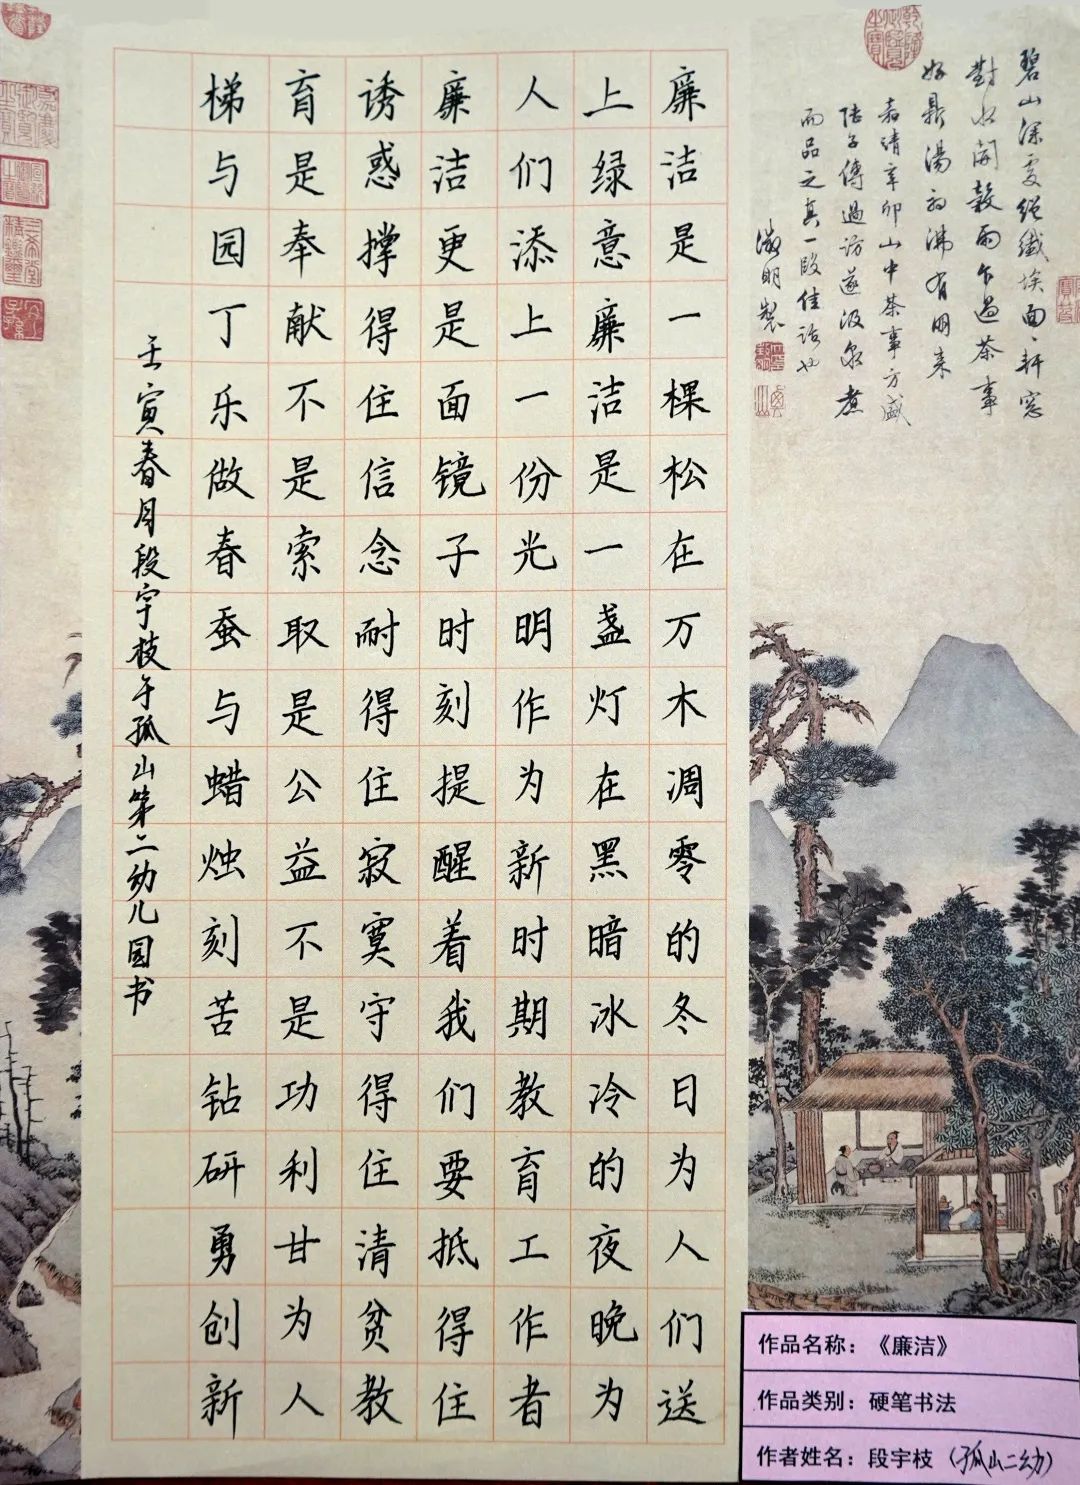 碧山深处绝纤埃面面轩窓
對水開穀雨乍過茶事
好鼎湯初沸有朋来
嘉靖辛卯山中茶事方盛
陸子傳過訪遂汲泉煮
而品之真一段佳話也
徵明製
廉洁是一棵松在万木凋零的冬日为人们送
上绿意廉洁是一盏灯在黑暗冰冷的夜晚为
人们添上一份光明作为新时期教育工作者
廉洁更是面镜子时刻提醒着我们要抵得住
诱惑撑得住信念耐得住寂寞守得住清贫教
育是奉献不是索取是公益不是功利甘为人
梯与园丁乐做春蚕与蜡烛刻苦钻研勇创新
壬寅春月段宇枝于孤山第二幼儿园书
作品名称：《廉洁》
作品类别：硬笔书法
作者姓名：段宇枝（孤山二幼）